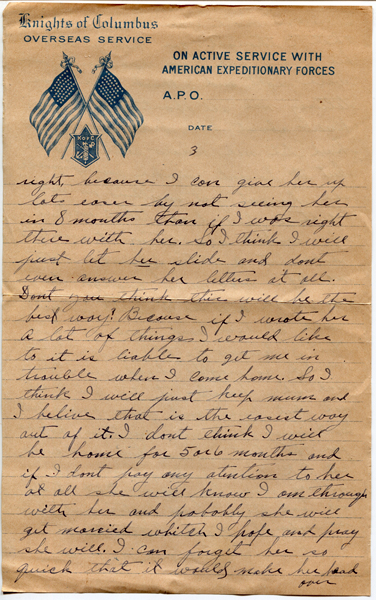 Knights of Columbus
OVERSEAS SERVICE
ON ACTIVE SERVICE WITH
AMERICAN EXPEDITIONARY FORCES
A.P.O.
DATE
K of C
3
right, because I can give her up
lots easer by not seeing her
in 8 months than if I was right
thire with her. So I think I will
just let her slide and dont
even answer her letters at all.
Dont you think this will be the
best way? Because if I wrote her
a lot of things I would like
to it is liable to get me in
trouble when I come home. So I
think I will just keep mum and
I belive that is the easest way
out of it. I dont think I will
be home for 5 or 6 months and
if I dont pay any atention to her
at all she will know I am through
with her and pobobly she will
get married whitch I hope and pray
she will. I can forget her so
quick that it would make her head
over